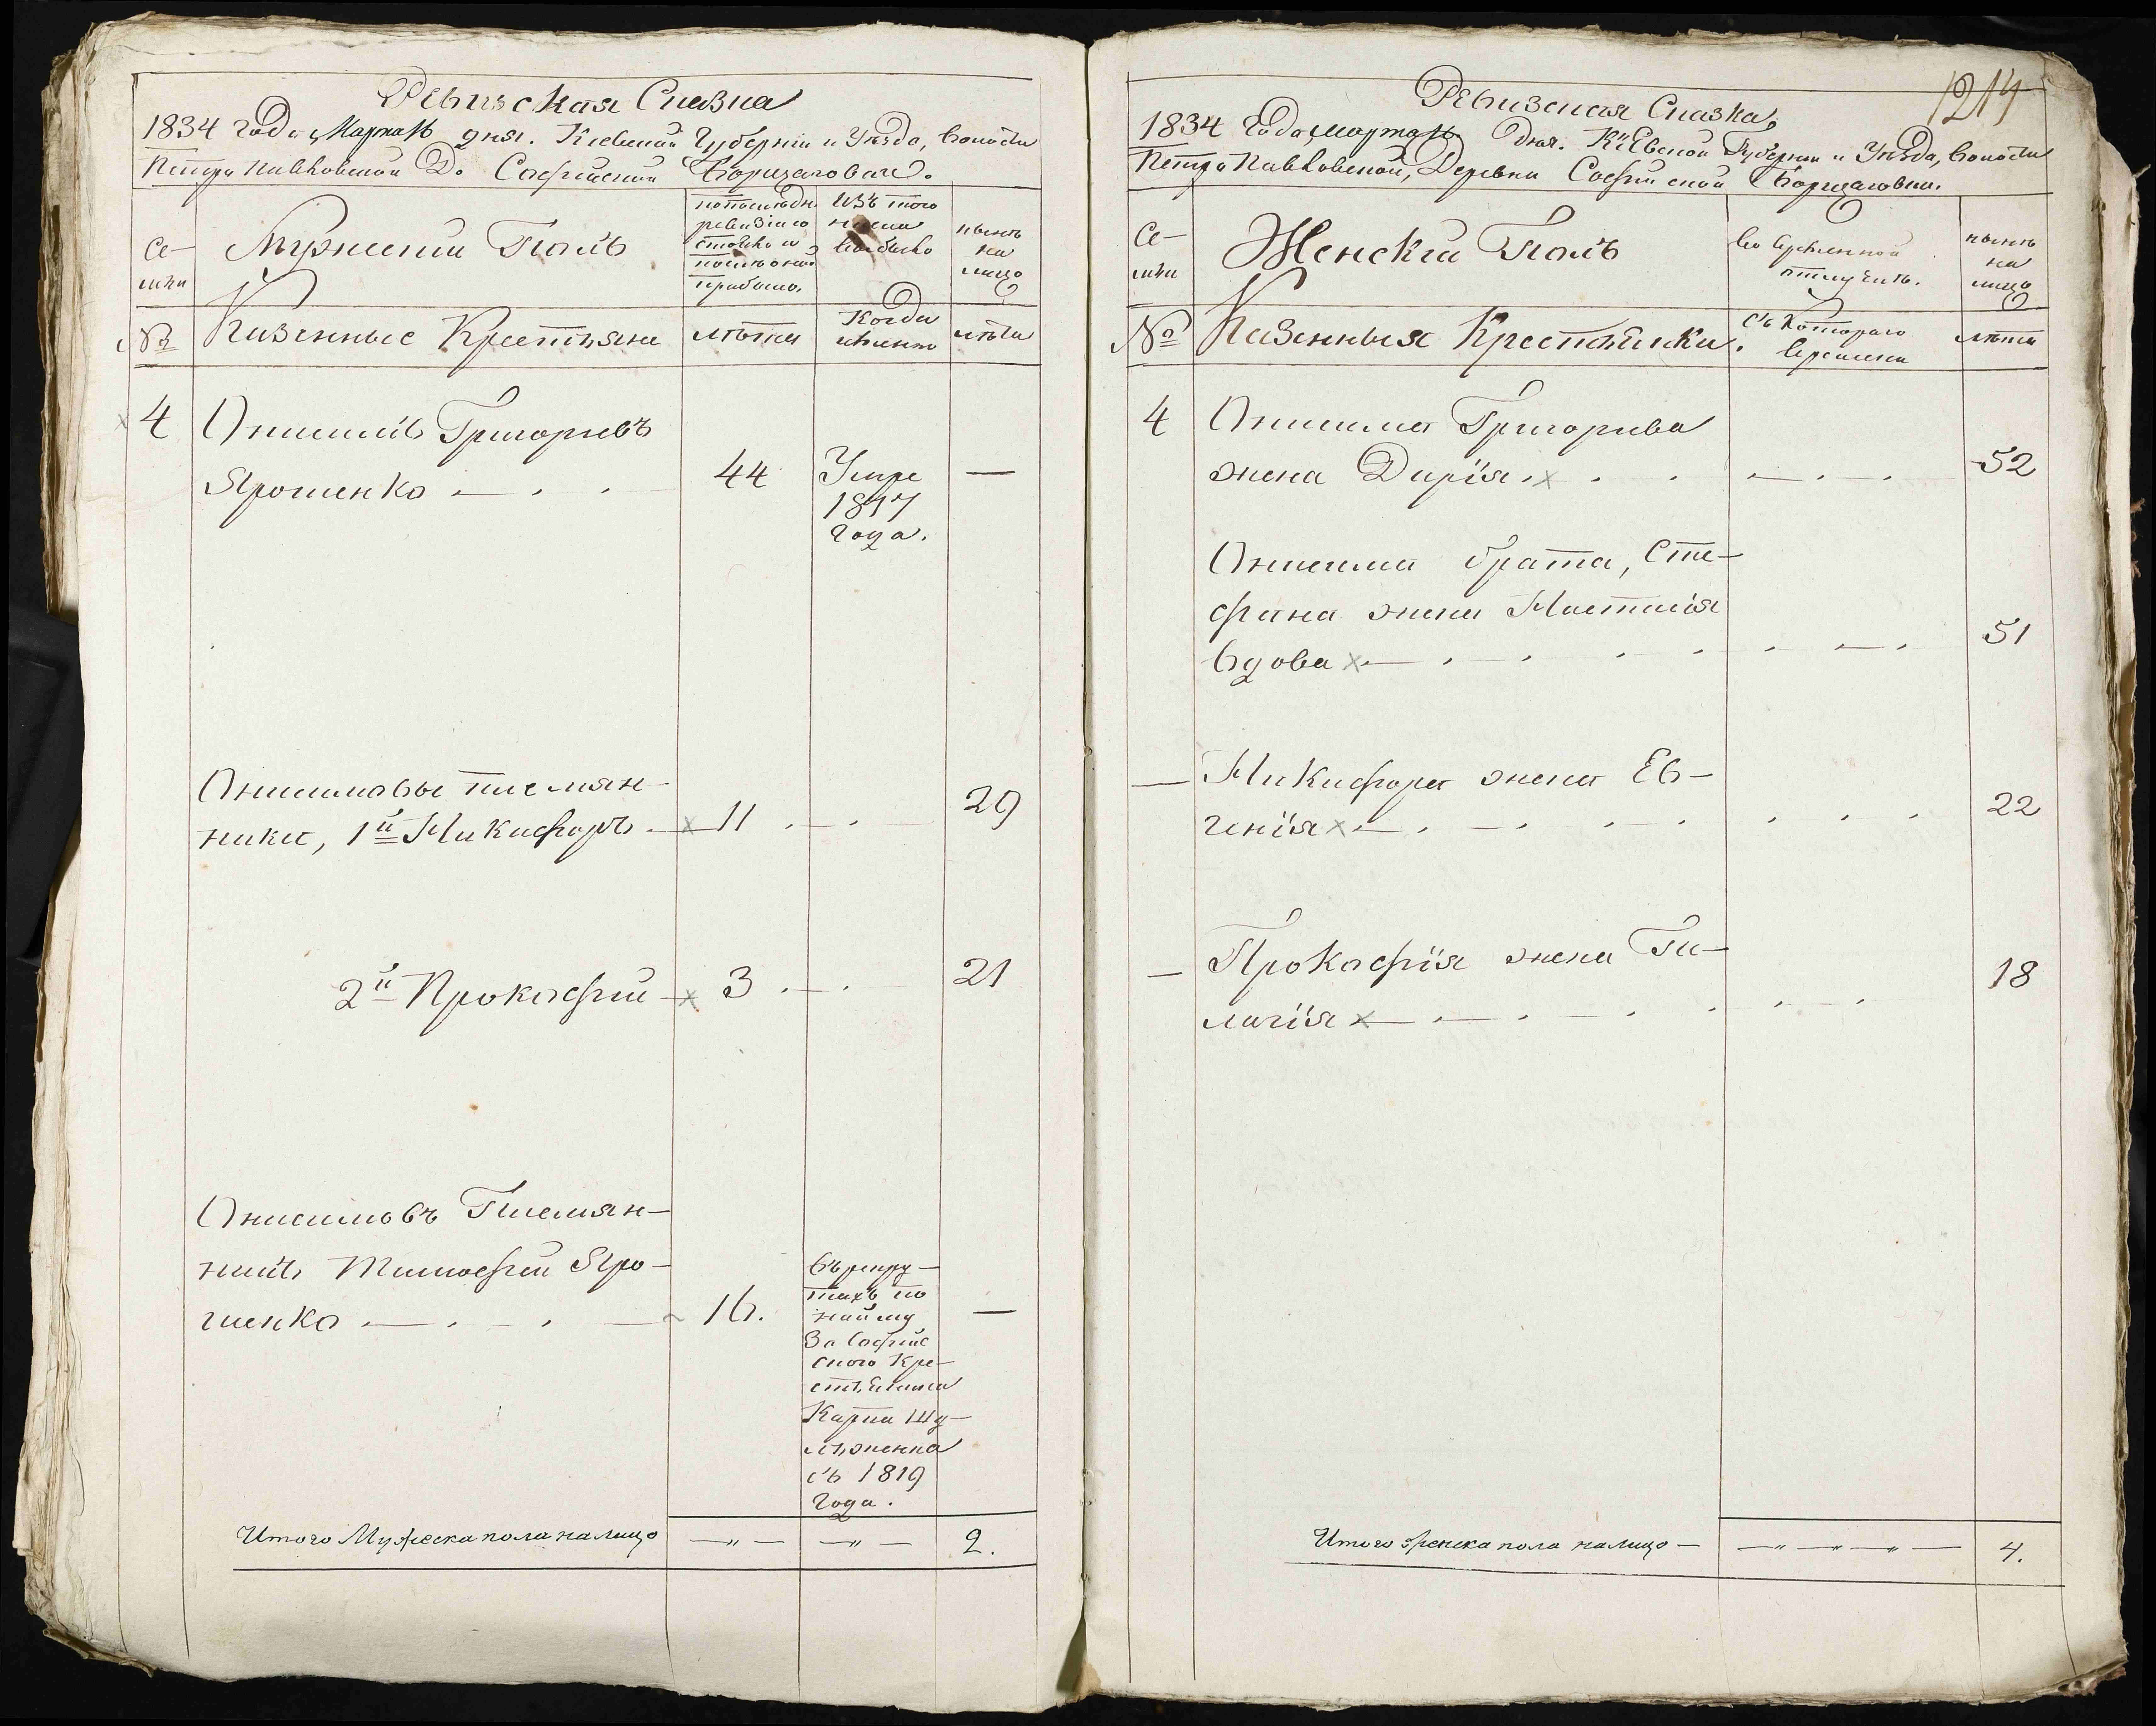 Ревизская Сказка
1834 года Марта 16 дня. Киевской Губернии и Уѣзда, волости
Петро Павловской Д. Софийской Борщаговки.
Се-
мьи
Мужеский Полъ
по последн.
ревизии со
стояло и
после оной
прибыло.
Изъ того
числа
выбыло
нынѣ
на
лицо
№
Казенные Крестьяне
лѣта
Когда
именно
лѣта
4
Онисимъ Григорьевъ
Ярошенко
44
Умре
1817
года.
—
Онисимовы племян-
ники, 1й Никифоръ
11
29
2й Прокофий
3
21
Онисимовъ Племян-
никъ Тимофей Яро-
шенко
16.
въ рекру-
тахъ по
найму
За Софий
ского Кре-
стьянина
Карпа Шу-
льженка
съ 1819
года.
—
Итого Мужеска пола налицо
2.
1214
Ревизская Сказка
1834 Года, Марта 16 Дня. Кіевской Губернии и Уѣзда, волости
Петро Павловской, Деревни Софийской Борщаговки.
Се-
мьи
Женский Полъ
во временной
отлучкѣ.
нынѣ
на
лицо
№
Казенныя Крестьянки.
съ Котораго
времени
лѣта
4
Онисима Григорьева
жена Дарія
52
Онисима брата, Сте-
фана жена Настасія
вдова
51
Никифора жена Ев-
генія
22
Прокофія жена Пе-
лагія
18
Итого женска пола налицо
4.